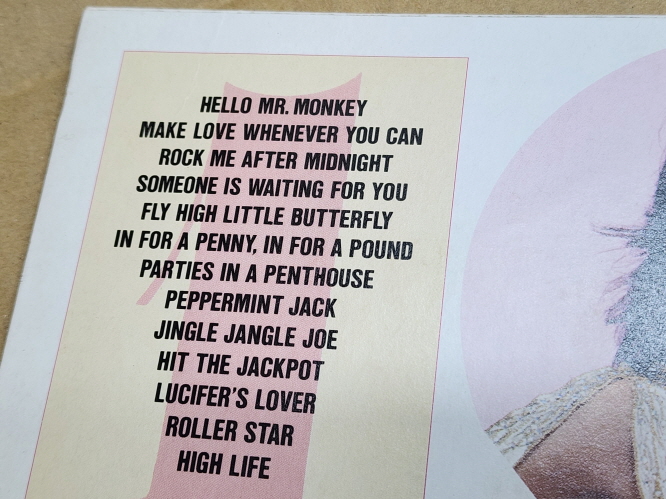 HELLO MR. MONKEY
MAKE LOVE WHENEVER YOU CAN
ROCK ME AFTER MIDNIGHT
SOMEONE IS WAITING FOR YOU
FLY HIGH LITTLE BUTTERFLY
IN FOR A PENNY, IN FOR A POUND
PARTIES IN A PENTHOUSE
PEPPERMINT JACK
JINGLE JANGLE JOE
HIT THE JACKPOT
LUCIFER'S LOVER
ROLLER STAR
HIGH LIFE